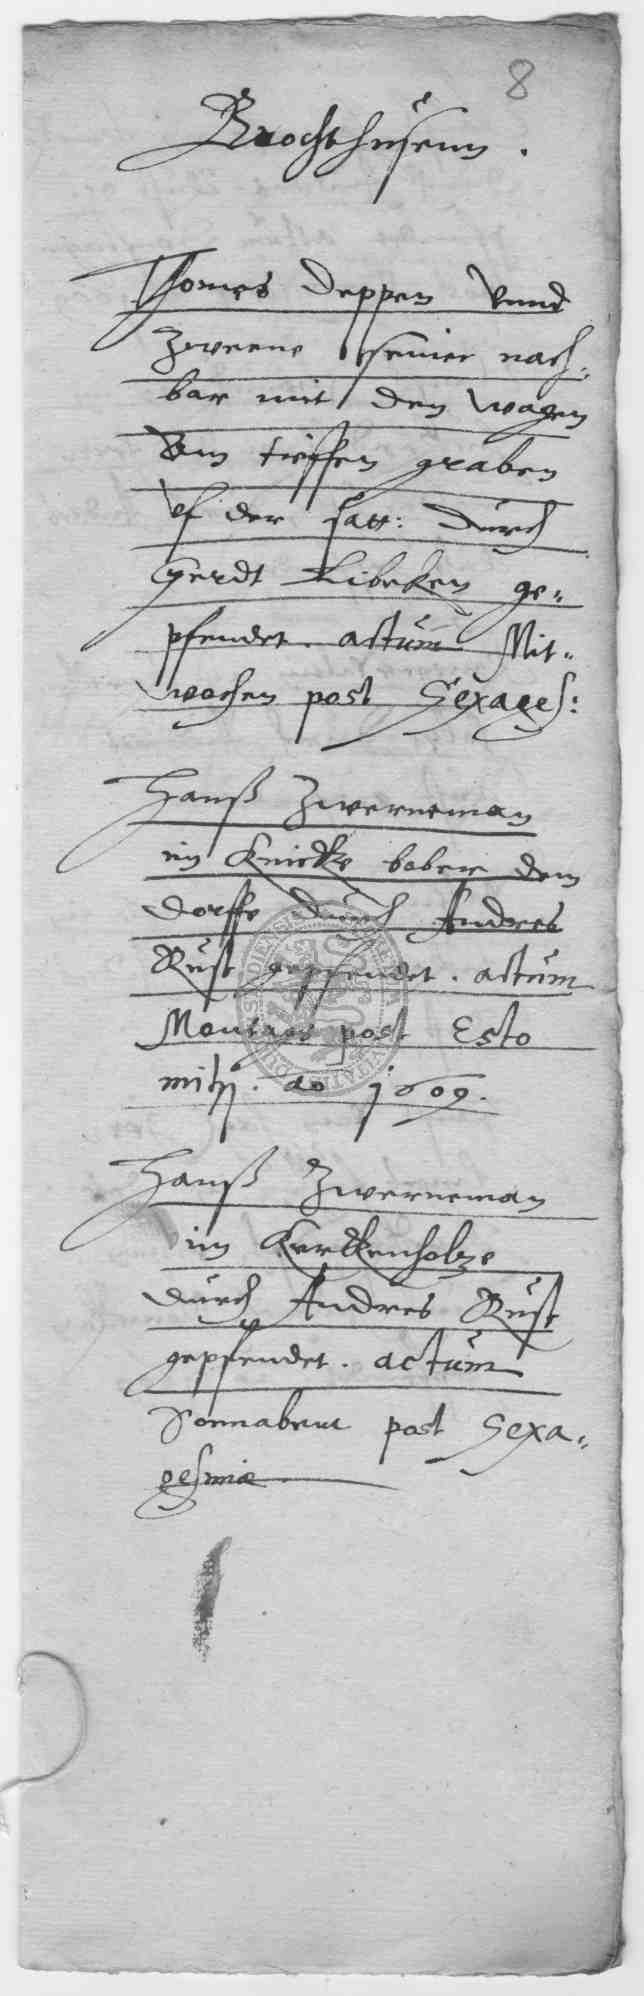 8
Brochthusenn.
Thomes Deppen vnnd
Zweene seiner nach-
bar mit den wagen
Am tieffen graben
vf der Satt: durch
Gerdt Libeken ge-
pfendet. actum Mit-
wochen post Sexages:
Hanß Zwerneman
im Knicke baben dem
dorffe durch Andres
Rust gepfendet. actum
Montags post Esto
mihj. ao 1609.
Hanß Zwerneman
im Kerckenholtze
durch Andres Rust
gepfendet. actum
Sonnabent post Sexa-
gesimæ